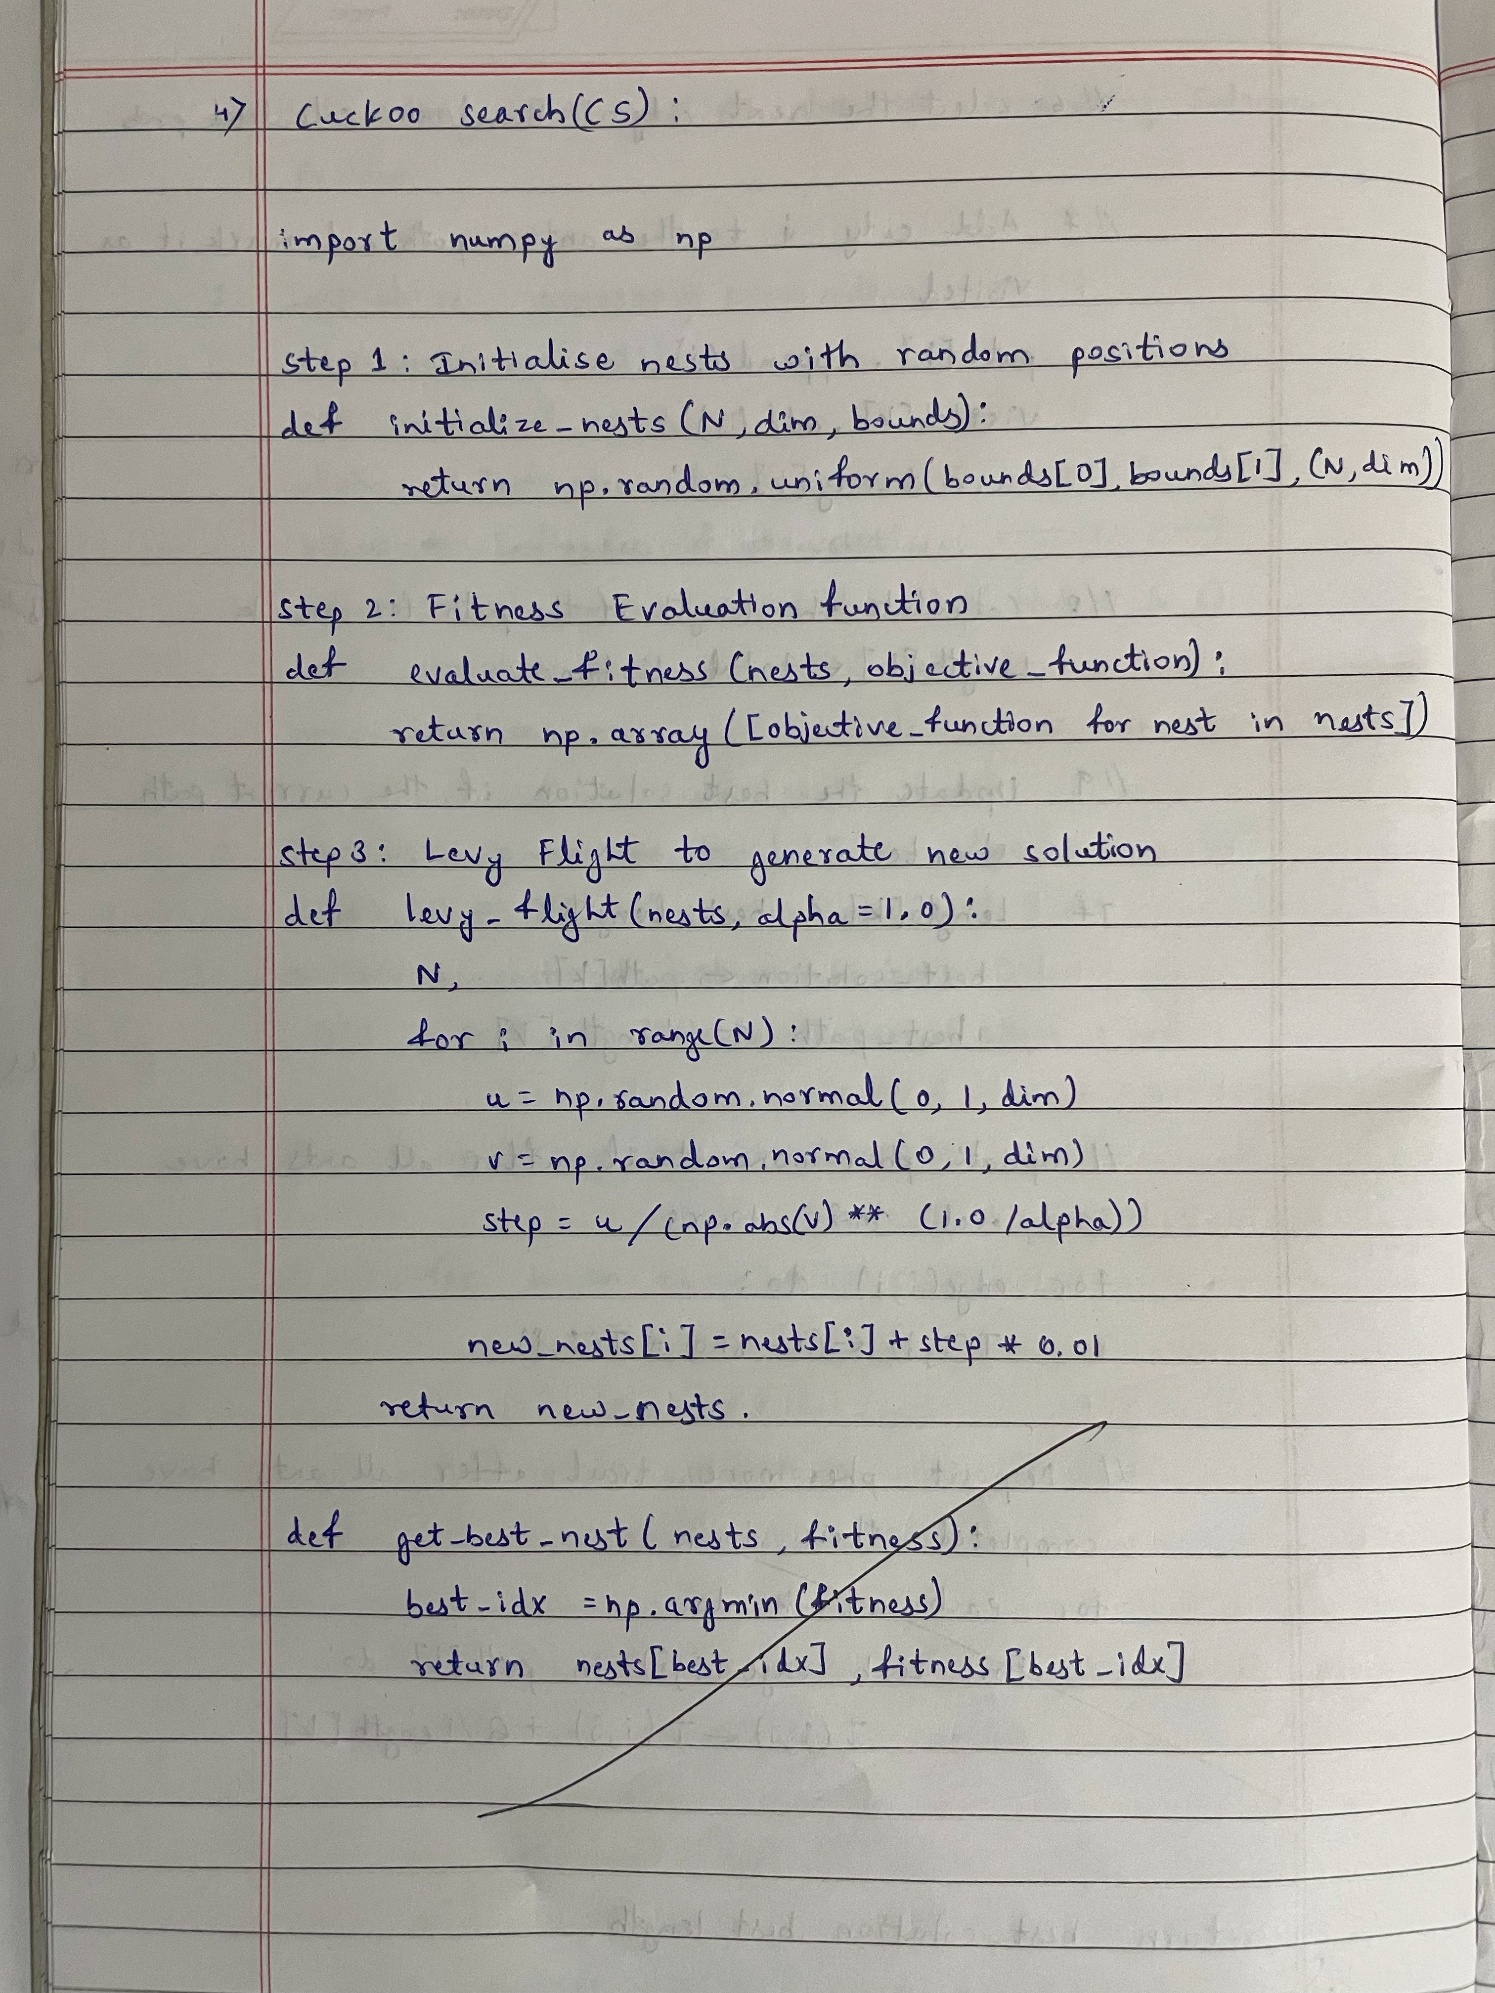 4) Cuckoo search(CS) :
import numpy as np
step 1 : Initialise nests with random positions
def initialize_nests (N, dim, bounds):
return np.random.uniform(bounds[0], bounds[1], (N, dim))
step 2: Fitness Evaluation function
def evaluate_fitness (nests, objective_function) :
return np.array ([objective_function for nest in nests])
step 3: Levy Flight to generate new solution
def levy_flight (nests, alpha = 1.0):
N,
for i in range(N) :
u = np.random.normal (0, 1, dim)
v = np.random.normal (0, 1, dim)
step = u / (np.abs(v) ** (1.0 /alpha))
new_nests[i] = nests[i] + step * 0.01
return new_nests.
def get_best_nest ( nests, fitness):
best_idx = np.argmin (fitness)
return nests[best_idx], fitness [best_idx]